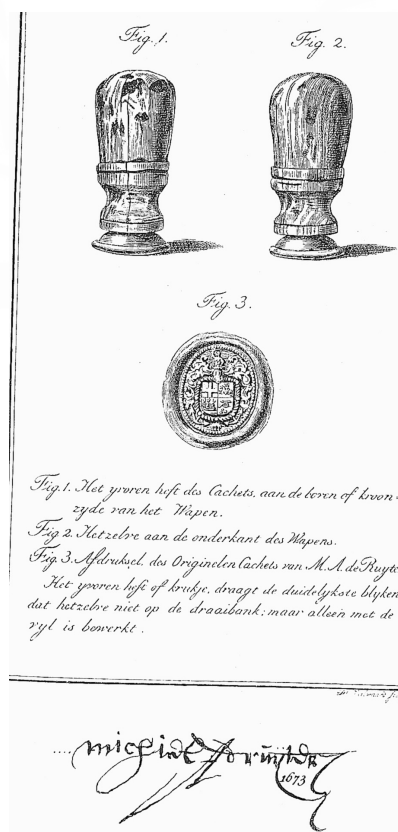 Fig. 1.
Fig. 2.
Fig. 3.
Fig. 1. Het yvoren heft des Cachets, aan de boven of kroon=
zyde van het Wapen.
Fig. 2. Hetzelve aan de onderkant des Wapens.
Fig. 3. Afdruksel des Originelen Cachets van M. A. de Ruyte
Het yvoren heft of krukje, draagt de duidelykste blyken
dat hetzelve niet op de draaibank; maar alleen met de
vyl is bewerkt.
michiel
1673